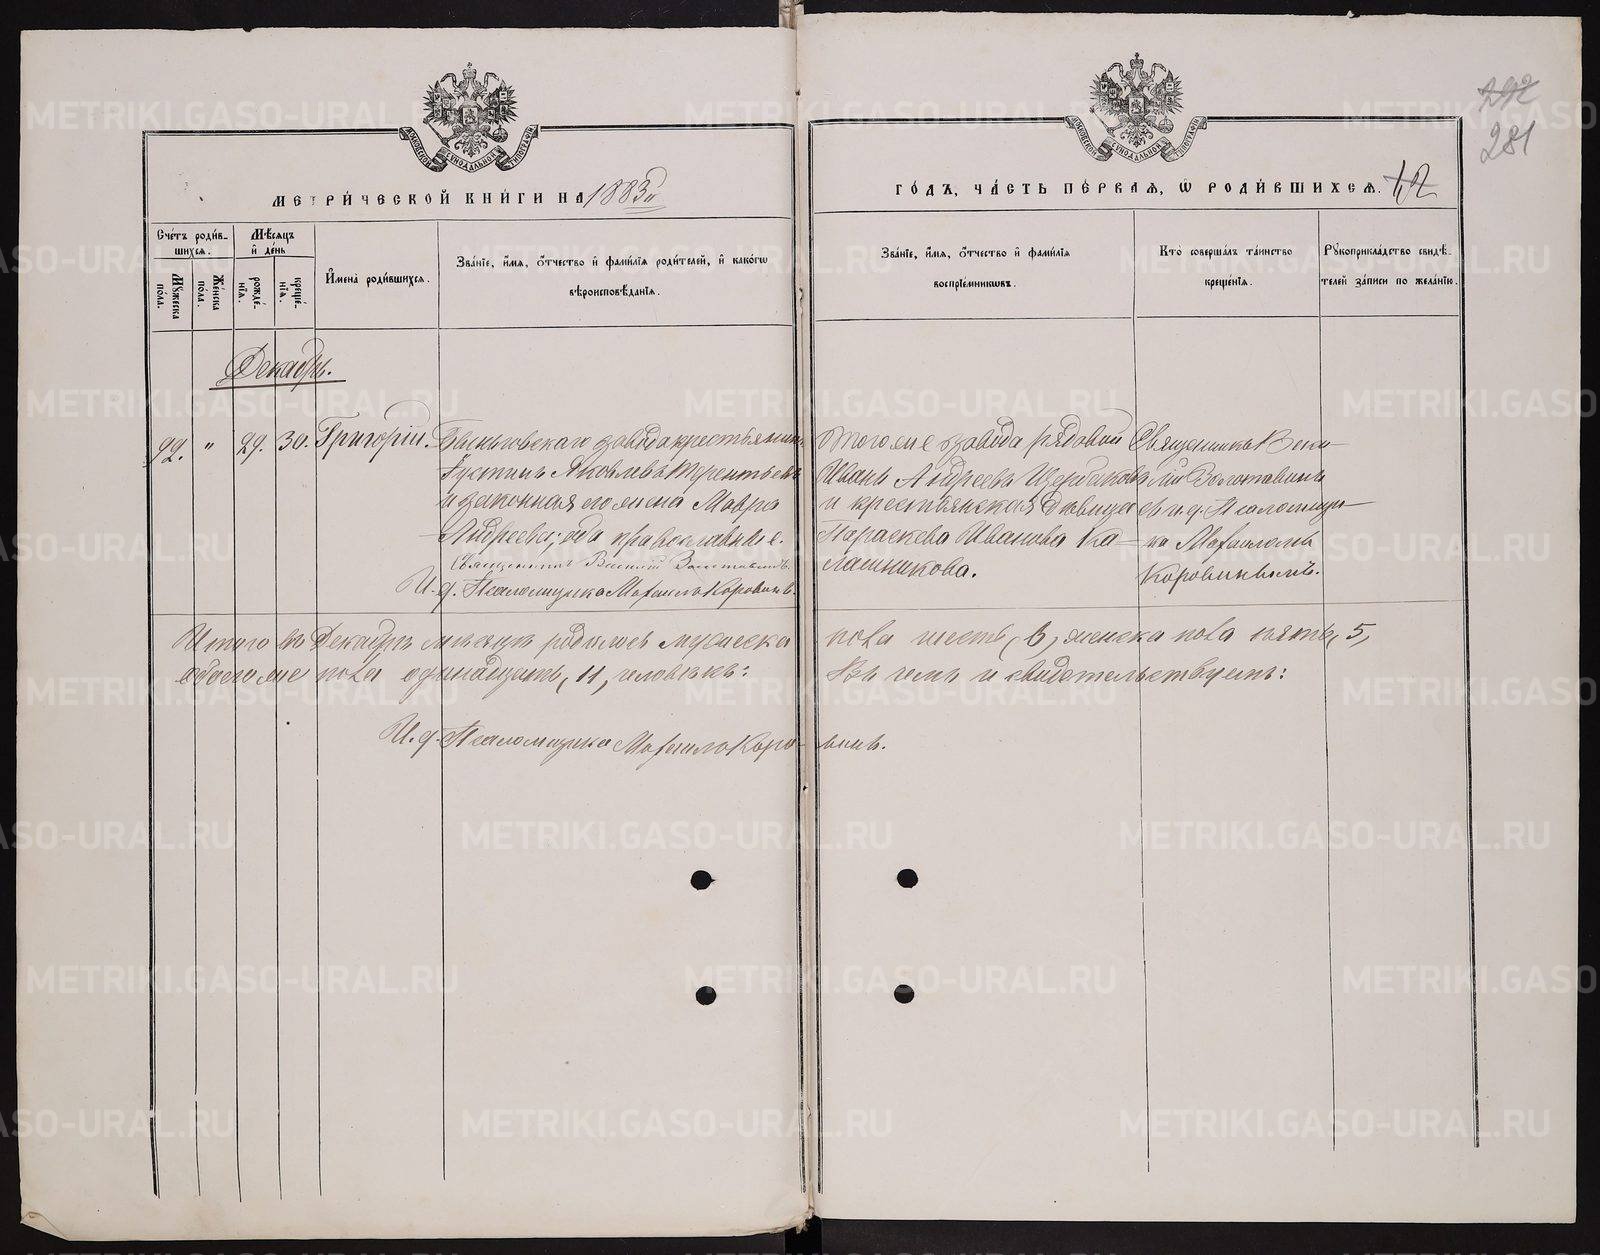 292
281
МОСКОВСКОЙ СѴНОДАЛЬНОЙ ТИПОГРАФІИ
МОСКОВСКОЙ СѴНОДАЛЬНОЙ ТИПОГРАФІИ
МЕТРИ́ЧЕСКОЙ КНИ́ГИ НА 1883й
ГО́ДЪ, ЧА́СТЬ ПЕ́РВАЯ, Ѡ РОДИ́ВШИХСЯ. 42
Сче́тъ роди́в-
шихся.
Мꙋ́жеска по́ла.
Же́нска по́ла.
Мѣ́сяцъ
и҆ де́нь
рожде́-
нїя.
креще́-
нїя.
И҆мена̀ роди́вшихся.
Зва́нїе, и҆́мя, ѻ҆́тчество и҆ фами́лїя роди́телей, и҆ како́гѡ
вѣроисповѣ́данїя.
Зва́нїе, и҆́мя, ѻ҆́тчество и҆ фами́лїя
воспрїе́мникѡвъ.
Кто̀ соверша́лъ та́инство
креще́нїя.
Рꙋкоприкла́дство свидѣ́-
телей за́писи по жела́нїю.
Декабрь.
92. " 29. 30. Григорій. Быньговскаго завода крестьянинъ
Густинъ Яковлевъ Терентьевъ
и законная его жена Мавра
Андреева; оба православные.
Священникъ Василій Золотавинъ
И. д. Псаломщика Михаилъ Коровинъ.
Того же завода рядовой
Иванъ Андреевъ Щербаковъ
и крестьянская дѣвица
Параскева Иванова Ка-
лашникова.
Священникъ Васи-
лій Золотавинъ
съ и. д. Псаломщи-
ка Михаиломъ
Коровинымъ.
Итого въ Декабрѣ мѣсяцѣ родилось мужеска пола шесть, 6, женска пола пять, 5,
обоего же пола одинадцать, 11, человѣкъ: Въ чемъ и свидетельствуемъ:
И. д. Псаломщика Михаилъ Коровинъ.
METRIKI.GASO-URAL.RU